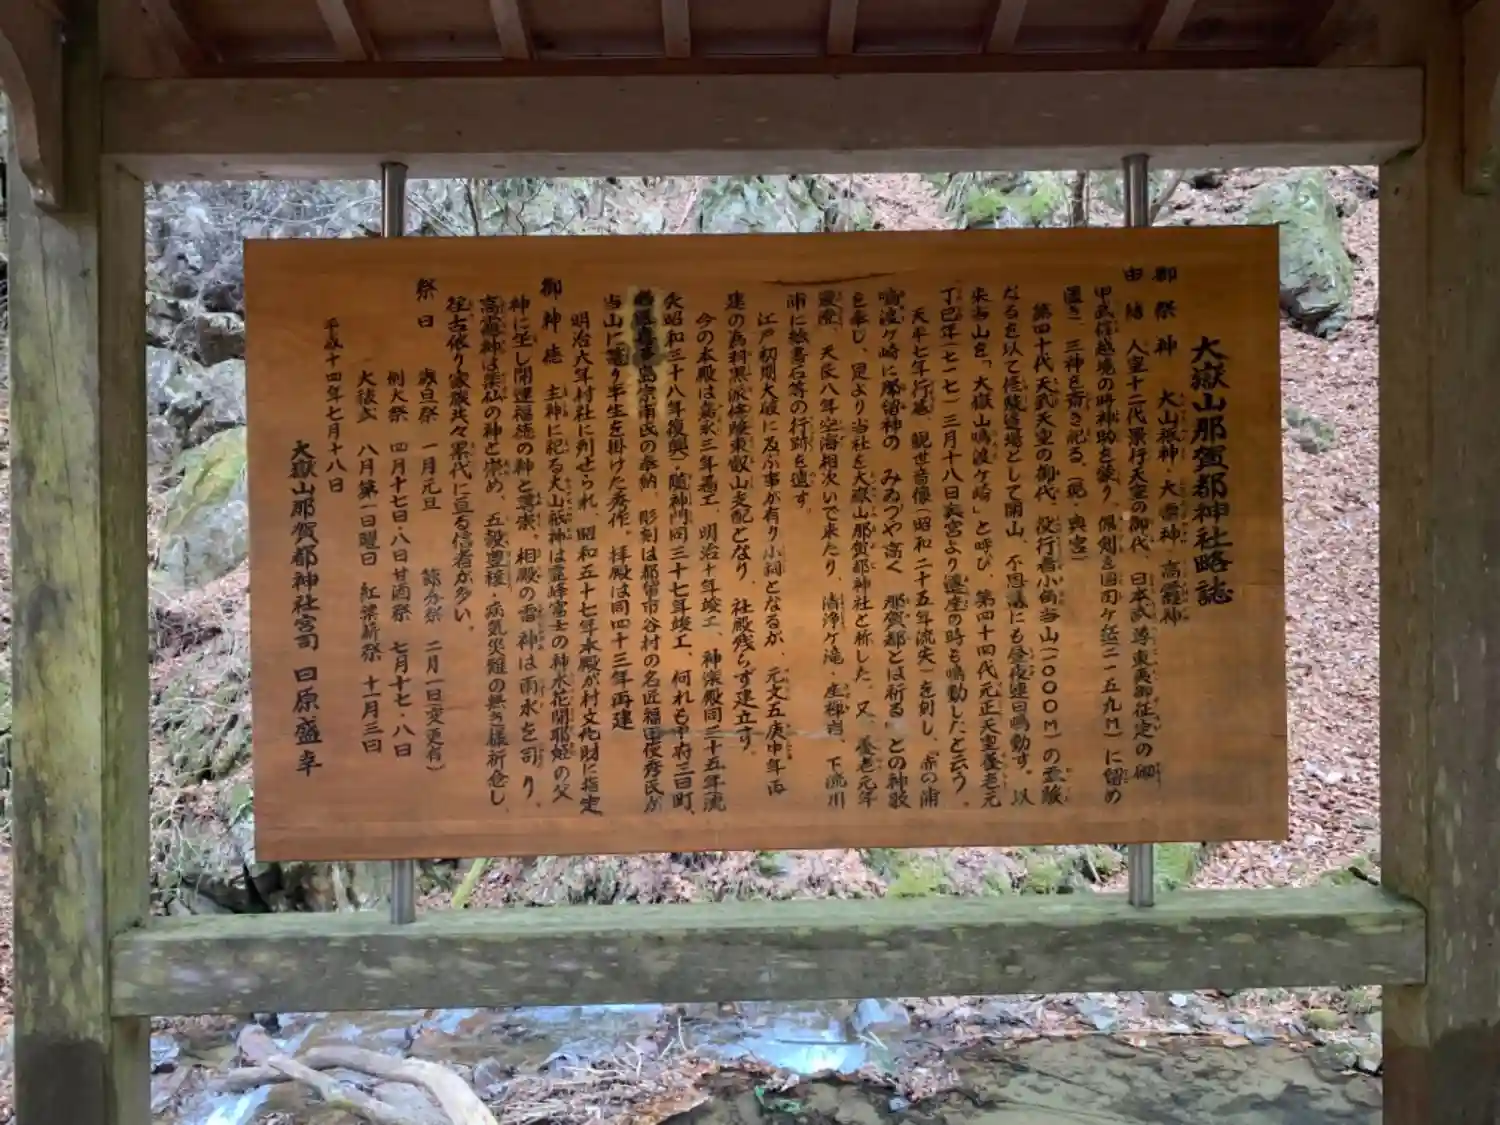 大嶽山那賀都神社略誌
御祭神 大山祗神・大雷神・高靇神
由緒 人皇十二代景行天皇の御代、日本武尊東夷御征定の砌
甲武信越境の時神助を蒙り、佩剣を国司ヶ岳(二一五九M)に留め
置き、三神を斎き祀る、(現・奥宮)
第四十代天武天皇の御代、役行者小角当山(一二〇〇M)の霊験
なるを以て修験道場として開山、不思議にも昼夜連日鳴動す。以
来当山を「大嶽山鳴渡ヶ崎」と呼び、第四十四代元正天皇養老元
丁巳年(七一七)三月十八日奥宮より遷座の時も鳴動したと云う。
天平七年行基、観世音像(昭和二十五年流失)を刻し、『赤の浦
鳴渡ヶ崎に留神の みゐづや高く 那賀都とは祈る』との神歌
を奉じ、是より当社を大嶽山那賀都神社と称した。又、養老元年
、天長八年空海相次いで来たり、清浄ヶ滝・座禅岩、下流川
浦に絵書石等の行跡を遺す。
江戸初期大破に及ぶ事が有り小祠となるが、元文五庚申年再
建の為科黒派修験東叡山支配となり、社殿残らず建立す。
今の本殿は嘉永三年着工、明治十年竣工、神楽殿同三十五年流
失昭和三十八年復興・随神門同三十七年竣工、何れも甲府三日町、
宗南氏の奉納、彫刻は都留市谷村の名匠福田俊秀氏が
当山に籠り半生を掛けた秀作。拝殿は同四十三年再建
明治六年村社に列せられ、昭和五十七年本殿が村文化財に指定
御神徳 主神に祀る大山祗神は霊峰富士の神木花開耶姫の父
神に坐し開運福徳の神と尊崇、相殿の雷神は雨水を司り、
高靇神は薬仙の神と崇め、五穀豊穣・病気災難の無き様祈念し、
往古依り家族共々累代に亘る信者が多い。
祭日 歳旦祭 一月元旦 節分祭 二月一日(変更有)
例大祭 四月十七日・八日 甘酒祭 七月十七・八日
大祓式 八月第一日曜日 紅葉薪祭 十一月三日
平成十四年七月十八日
大嶽山那賀都神社宮司 日原盛幸